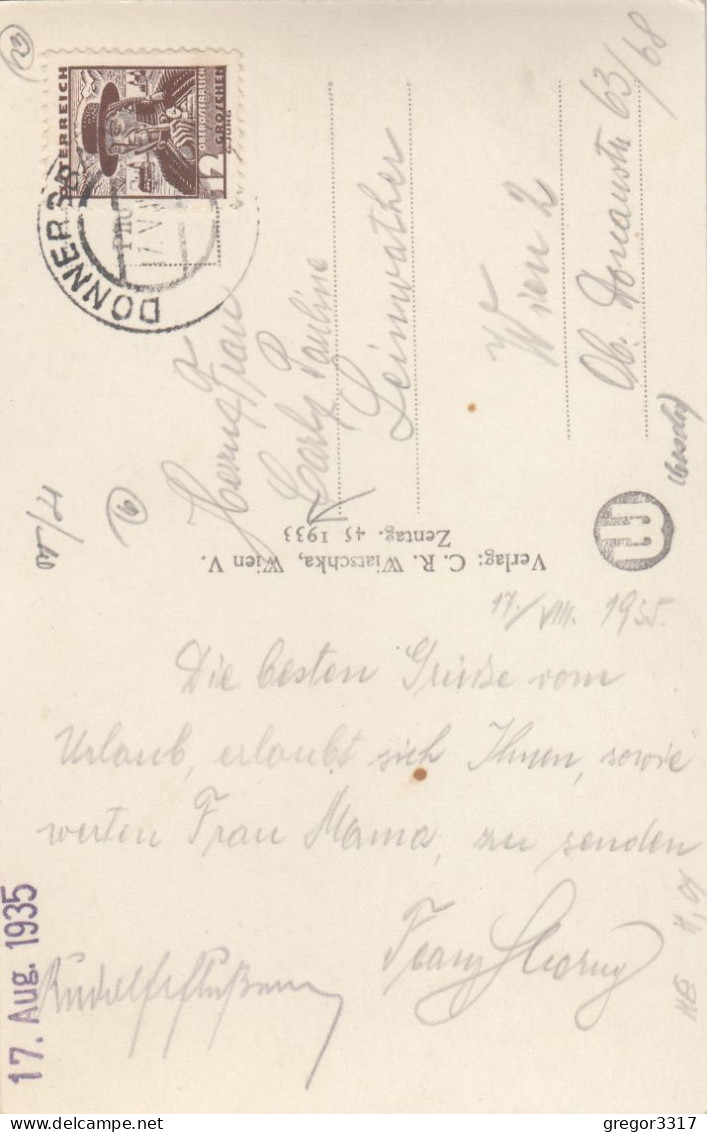 ÖSTERREICH
OBERÖSTERREICH
12 GROSCHEN
DONNERSB
Herrn & Frau
Pauline
Leinwather
Wien 2
Ob. Donaustr 63/68
Verlag: C. R. Wiatschka, Wien V.
Zentag. 45 1933
17./VIII. 1935.
Die besten Grüße vom
Urlaub, erlaubt sich Ihnen, sowie
werten Frau Mama, zu senden
Franz
17. Aug. 1935
gregor3317